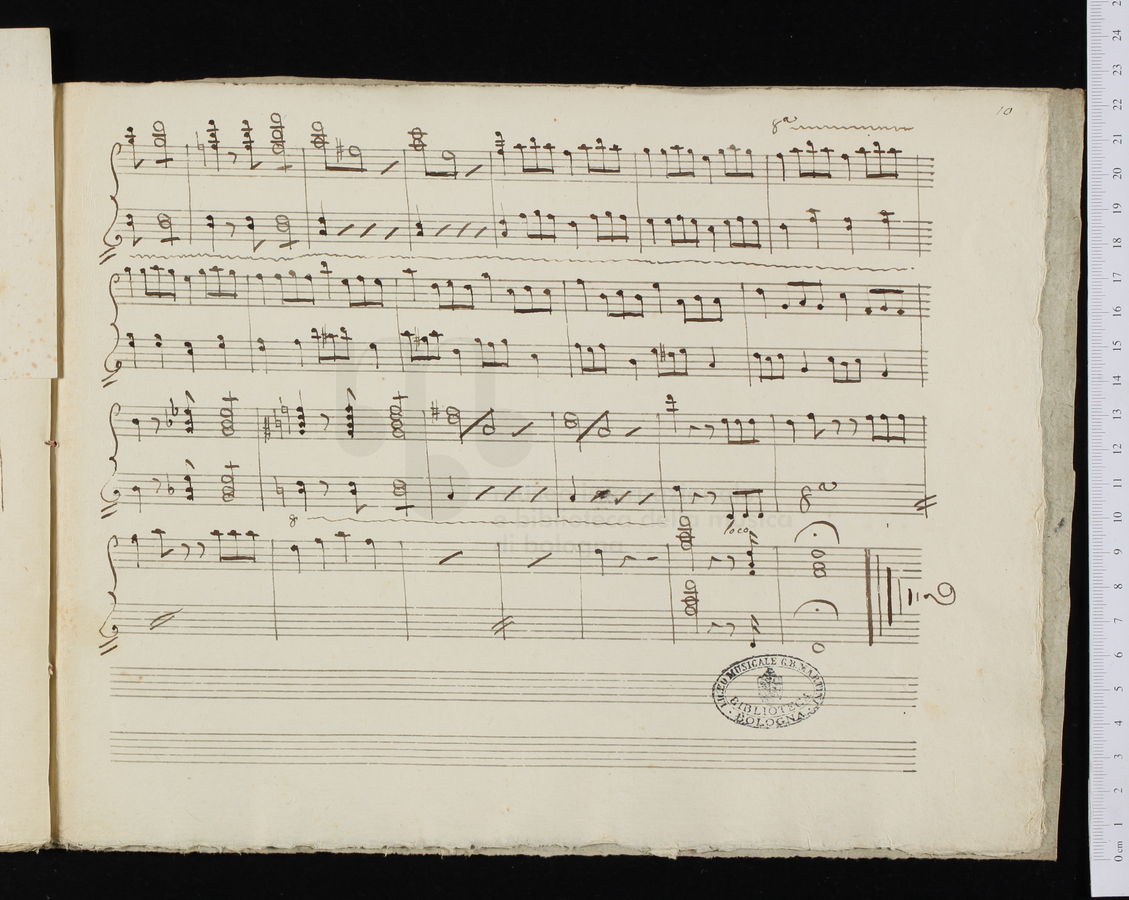 10
8ª
8ª
8
loco
e biblioteca della musica
di bologna
LICEO MUSICALE G.B. MARTINI
BIBLIOTECA
BOLOGNA
24
23
22
21
20
19
18
17
16
15
14
13
12
11
10
9
8
7
6
5
4
3
2
1
0 cm